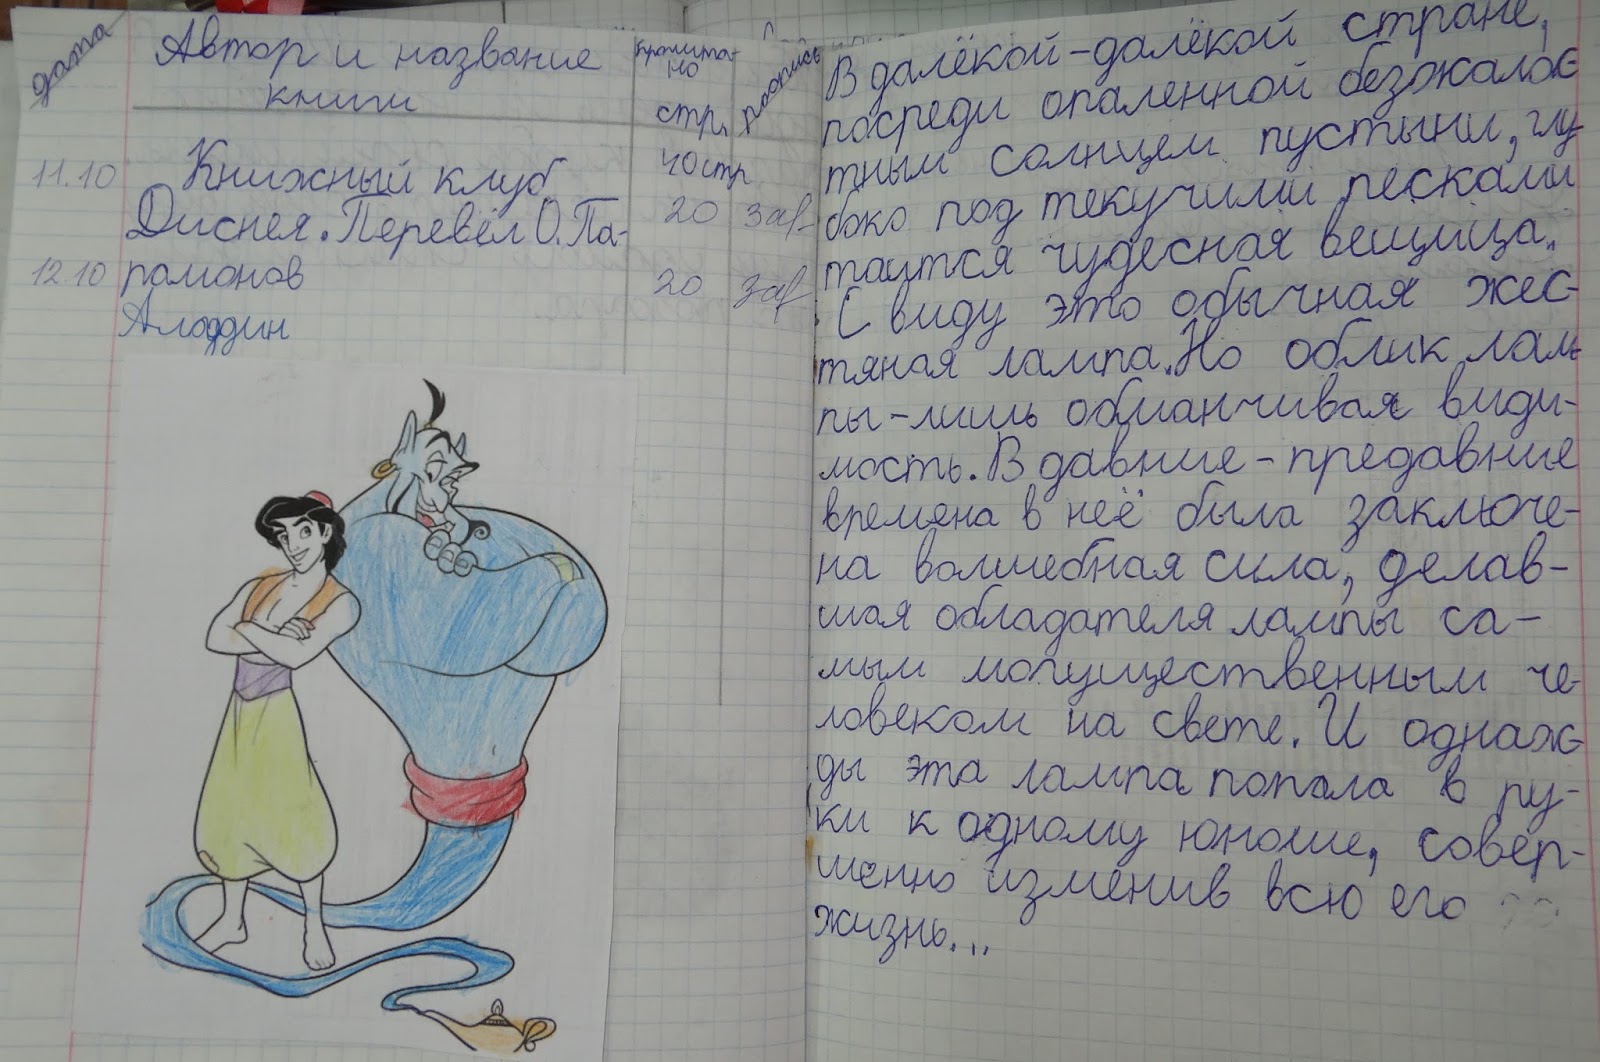 дата
Автор и название
книги
прочита-
но
стр.
роспись
11.10
Книжный клуб
40 стр
Диснея. Перевёл О. Па-
20
зав
12.10
рамонов
20
зав
Аладдин
В далёкой-далёкой стране,
посреди опаленной безжалос
тным солнцем пустыни, глу
боко под текучими песками
таится чудесная вещица.
С виду это обычная жес-
тяная лампа. Но облик лам
пы - лишь обманчивая види-
мость. В давние-предавние
времена в неё была заключе-
на волшебная сила, делав-
шая обладателя лампы са-
мым могущественным че-
ловеком на свете. И однаж-
ды эта лампа попала в ру-
ки к одному юноше, совер-
шенно изменив всю его
жизнь...